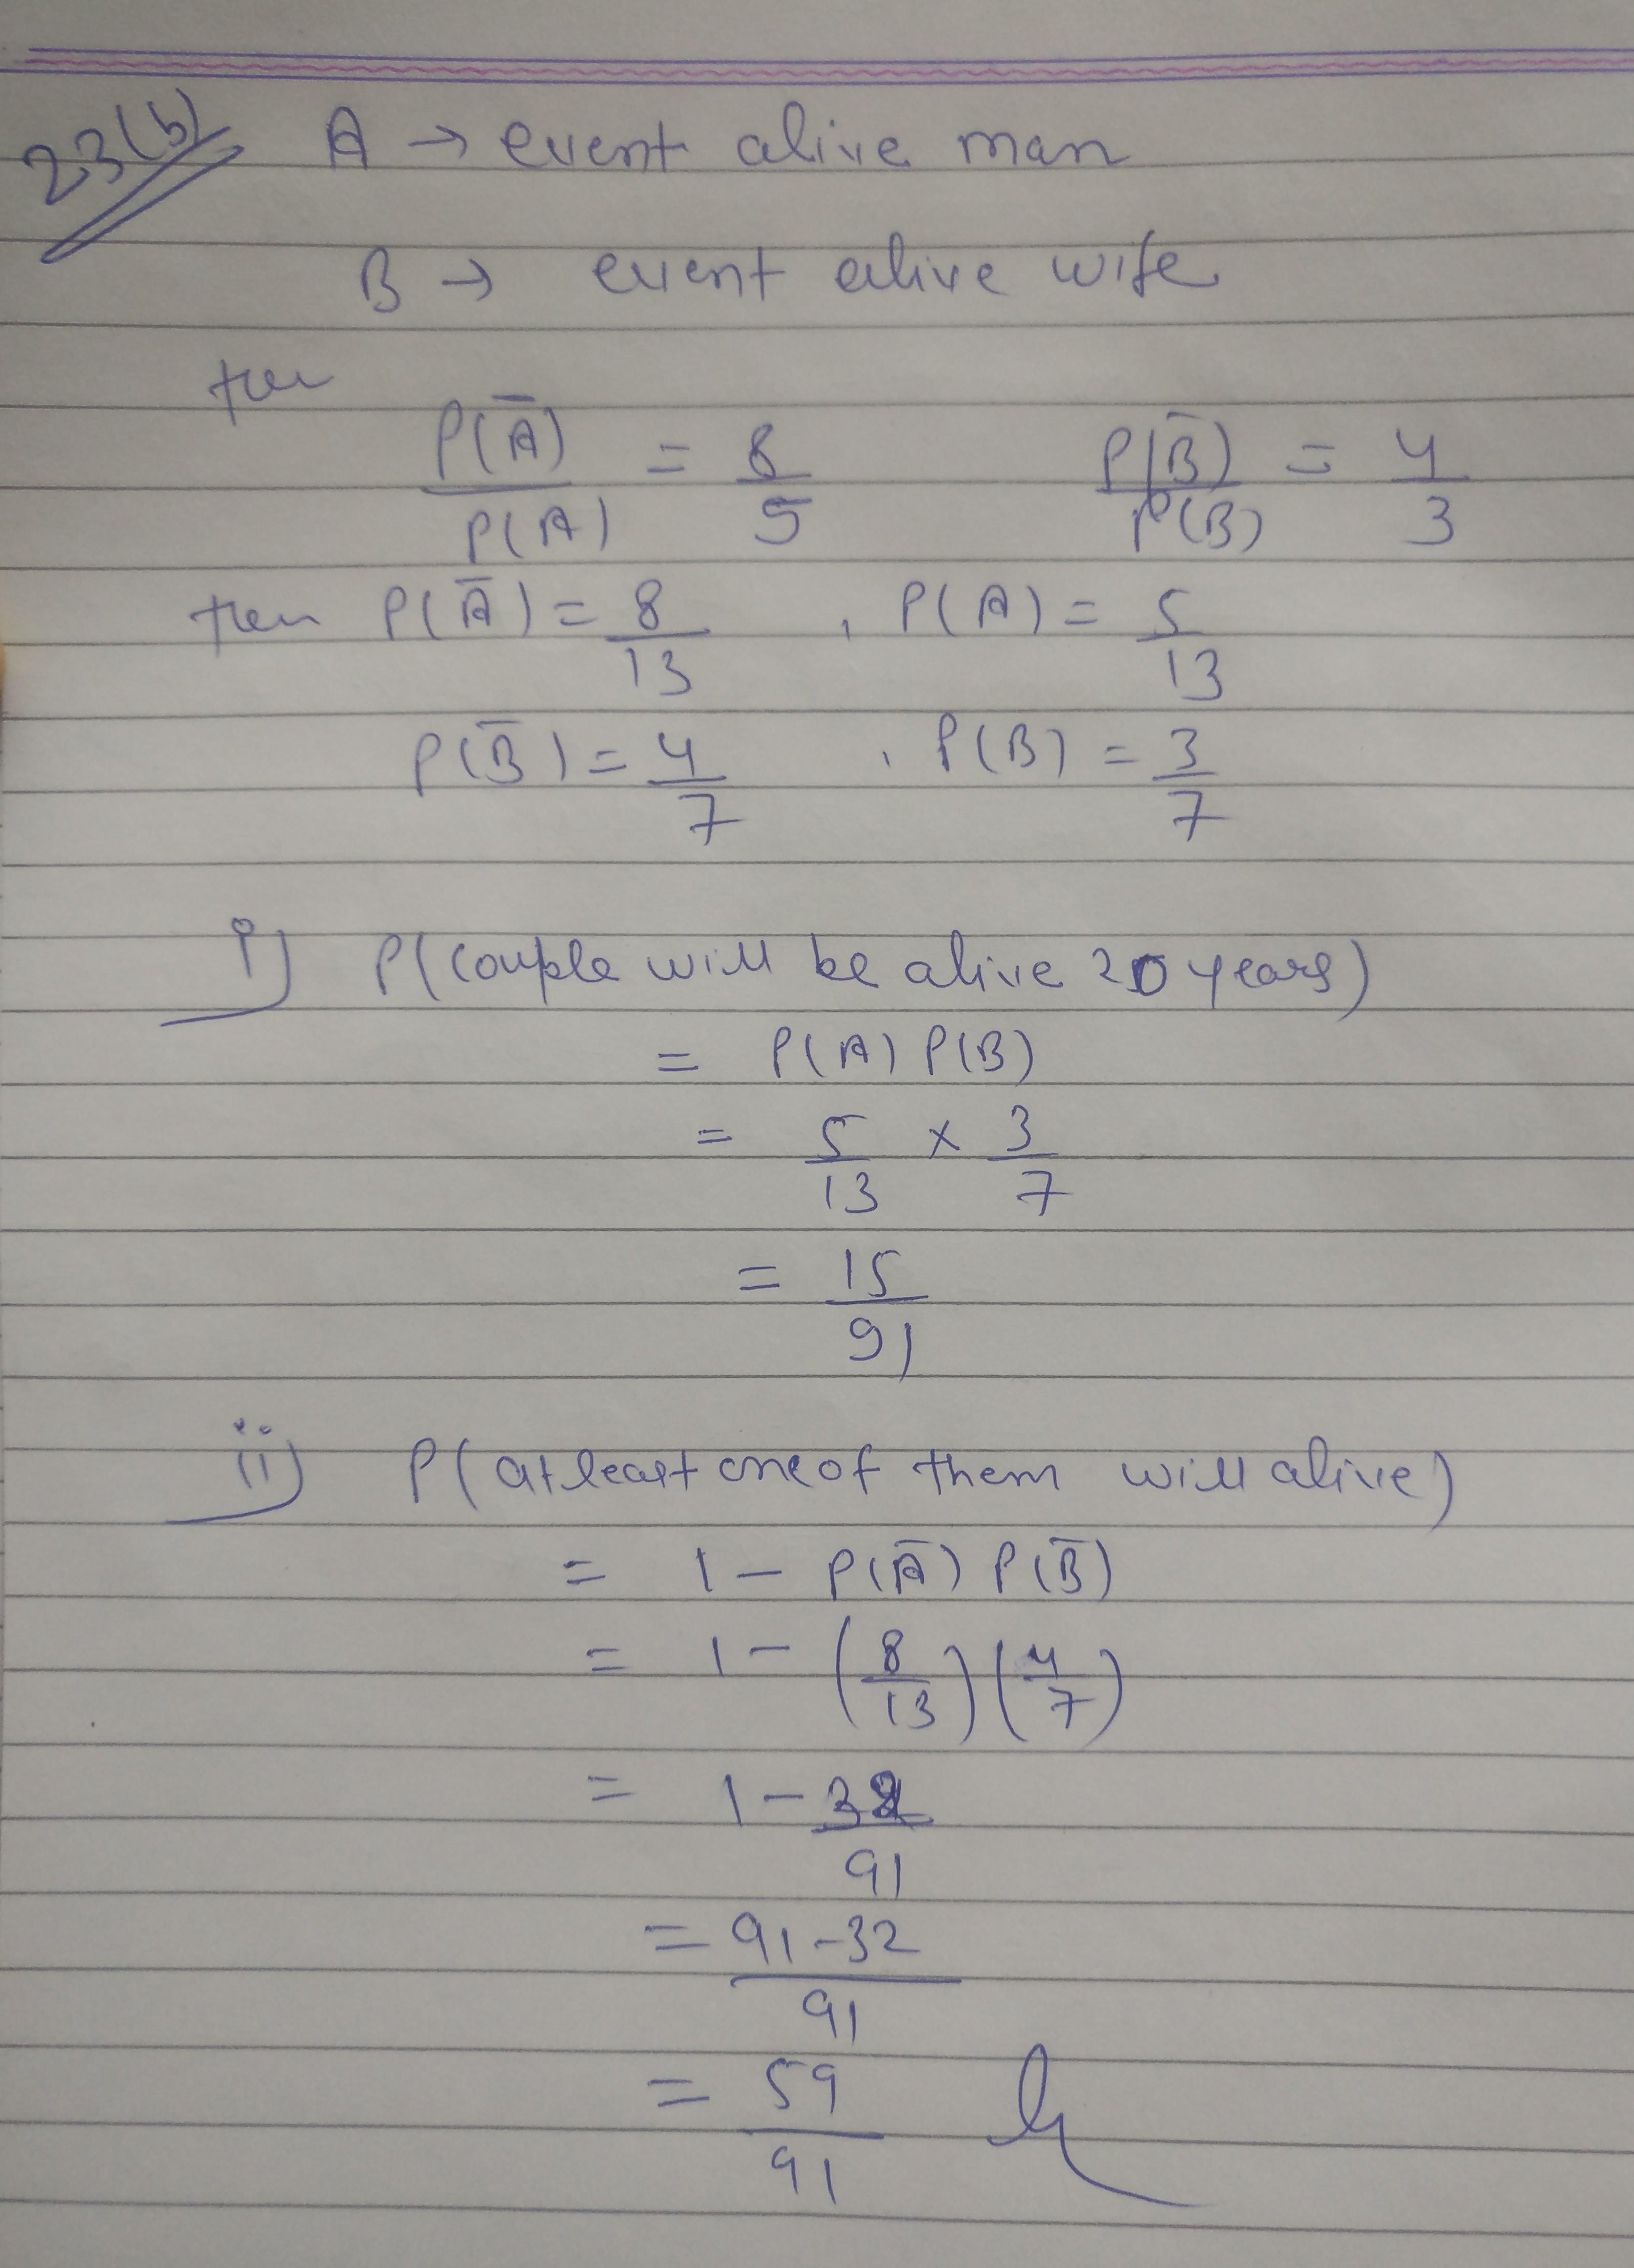 23(b) A → event alive man
B → event alive wife
P(Ā)/P(A) = 8/5 P(B̄)/P(B) = 4/3
then P(Ā) = 8/13 , P(A) = 5/13
P(B̄) = 4/7 , P(B) = 3/7
i) P(couple will be alive 20 years)
= P(A) P(B)
= 5/13 × 3/7
= 15/91
ii) P(atleast one of them will alive)
= 1 - P(Ā) P(B̄)
= 1 - (8/13)(4/7)
= 1 - 32/91
= 91-32/91
= 59/91